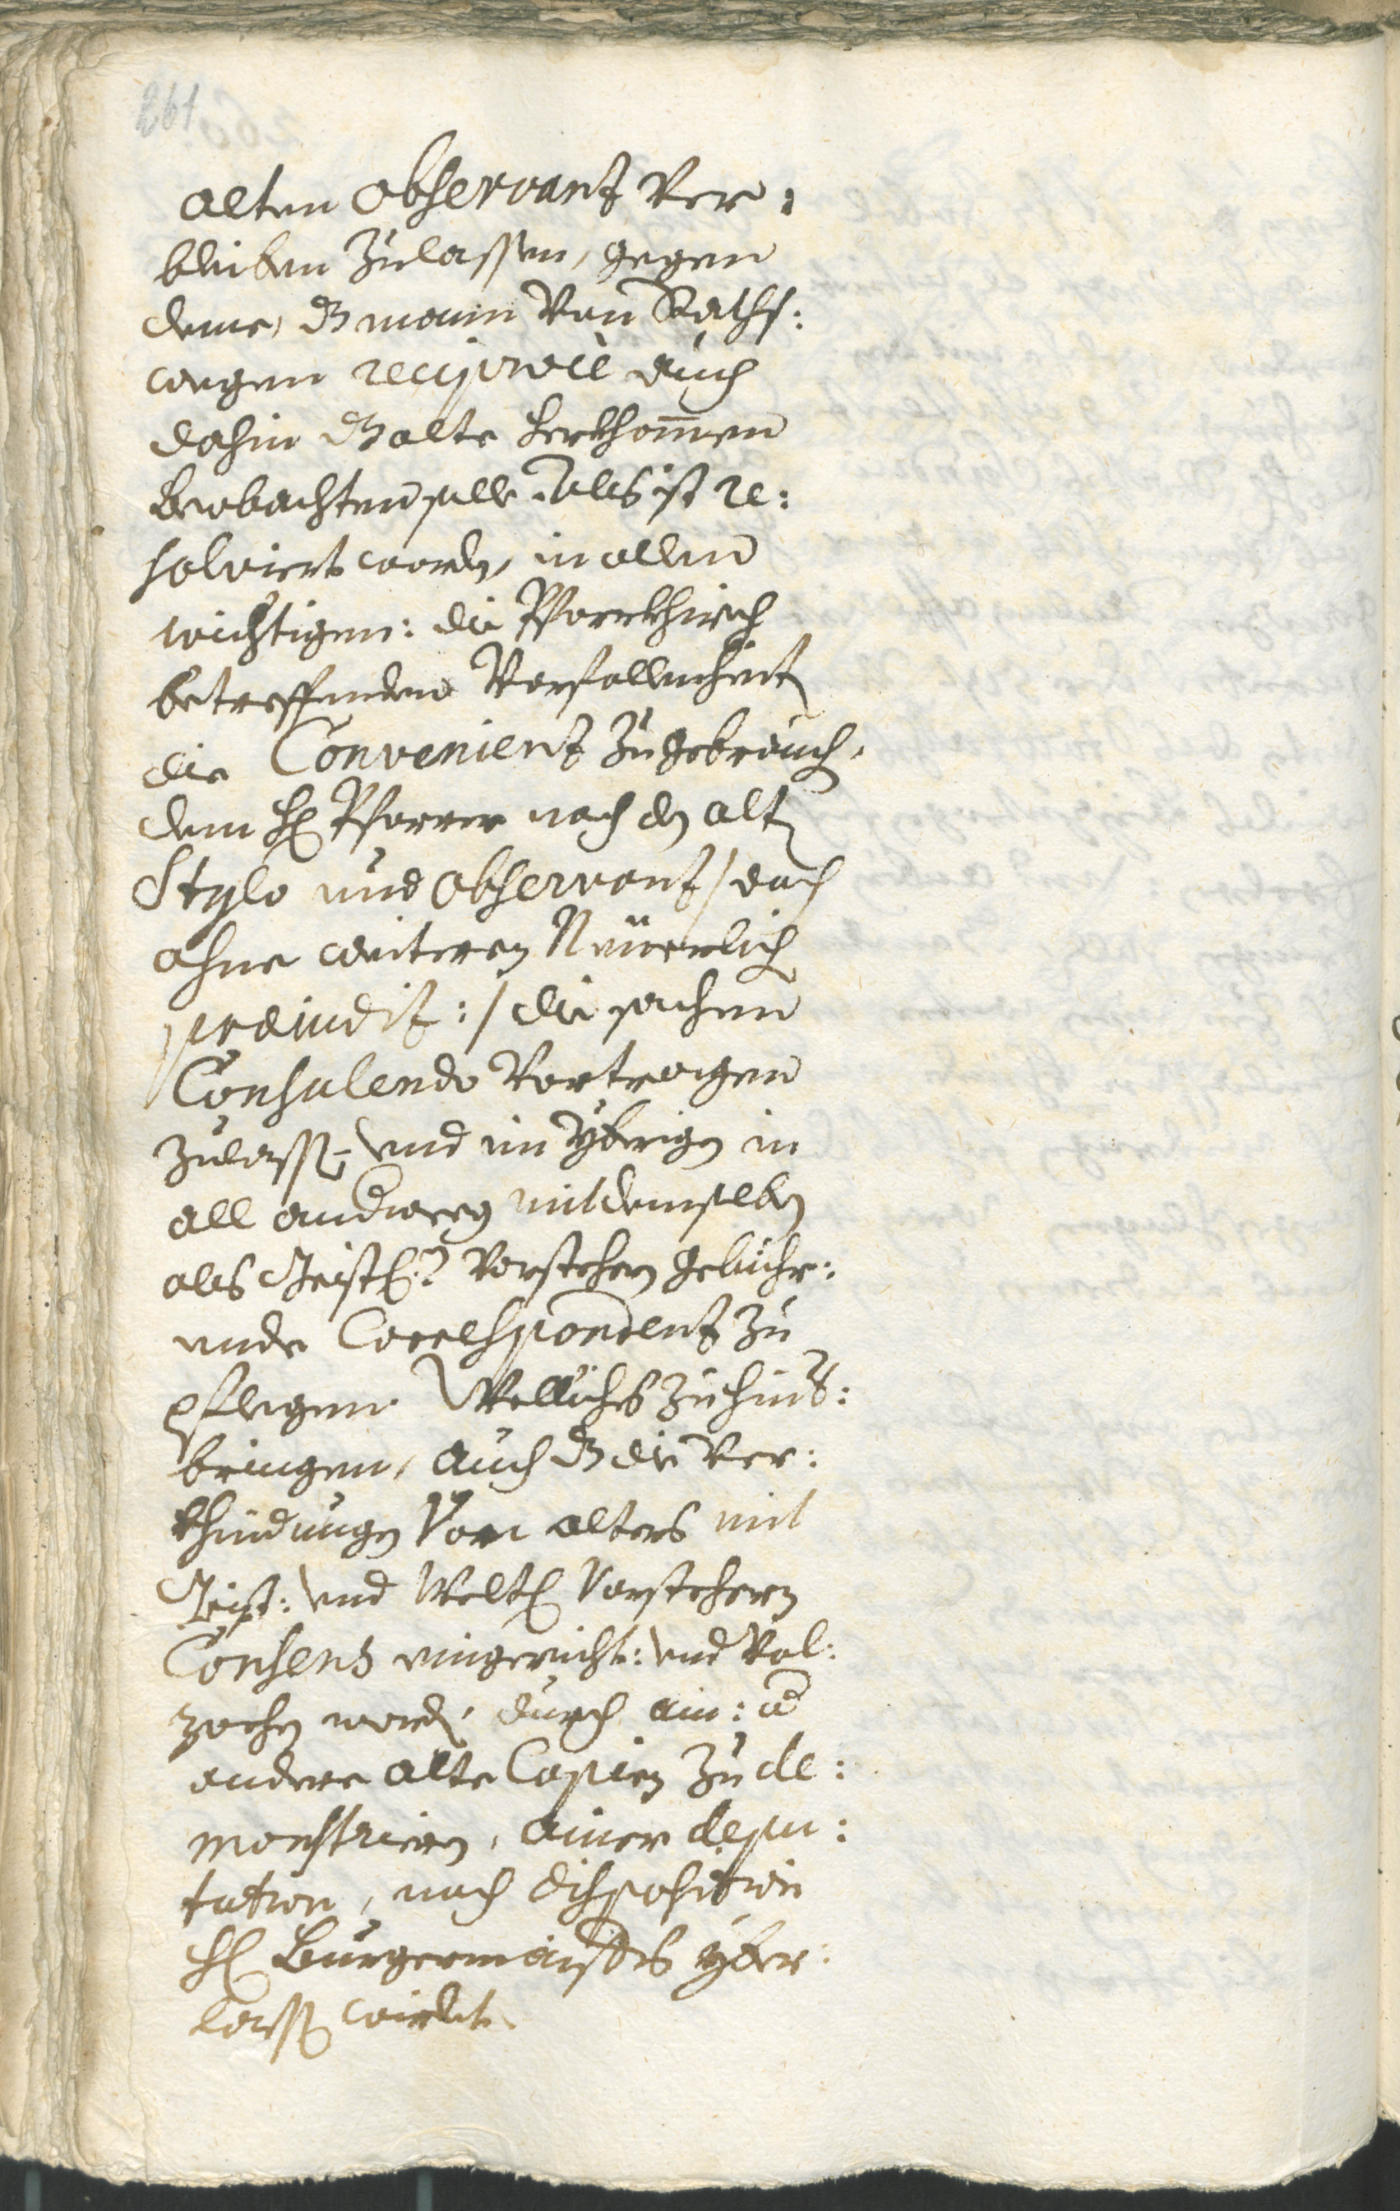 261
alten observantz ver:
bleiben zulassen, gegen
deme, dz mann von Raths:
wegen reciprocè auch
dahin dz alte herkhommen
beobachten solle. Alß ist re:
solviert worden, in allen
wichtigen: die Pfarrkhirch
betreffenden Vorfallenheiten
die Convenienz zugebrauchen,
dem H: Pfarrer nach den alten
Stylo und observantz / doch
ohne weiteren Neüerlichen
præiudiz: / die sachen
Consulendo vortragen
zulassen, und im yberigen in
all andweeg mit demselben
als Geistl: Vorstehern gebühr:
ende Correspondentz zu
pflegen. Welliches zu hint:
bringen, auch dz die Ver:
khindungen von alters mit
Geist: und Weltl: Vorstehern
Consens eingericht: und Vol:
zochen worden, durch ain: und
andere alte Copien zu de:
monstrieren, ainer depu:
tation, nach disposition
H: Burgermaisters yber:
lassen wirdet.